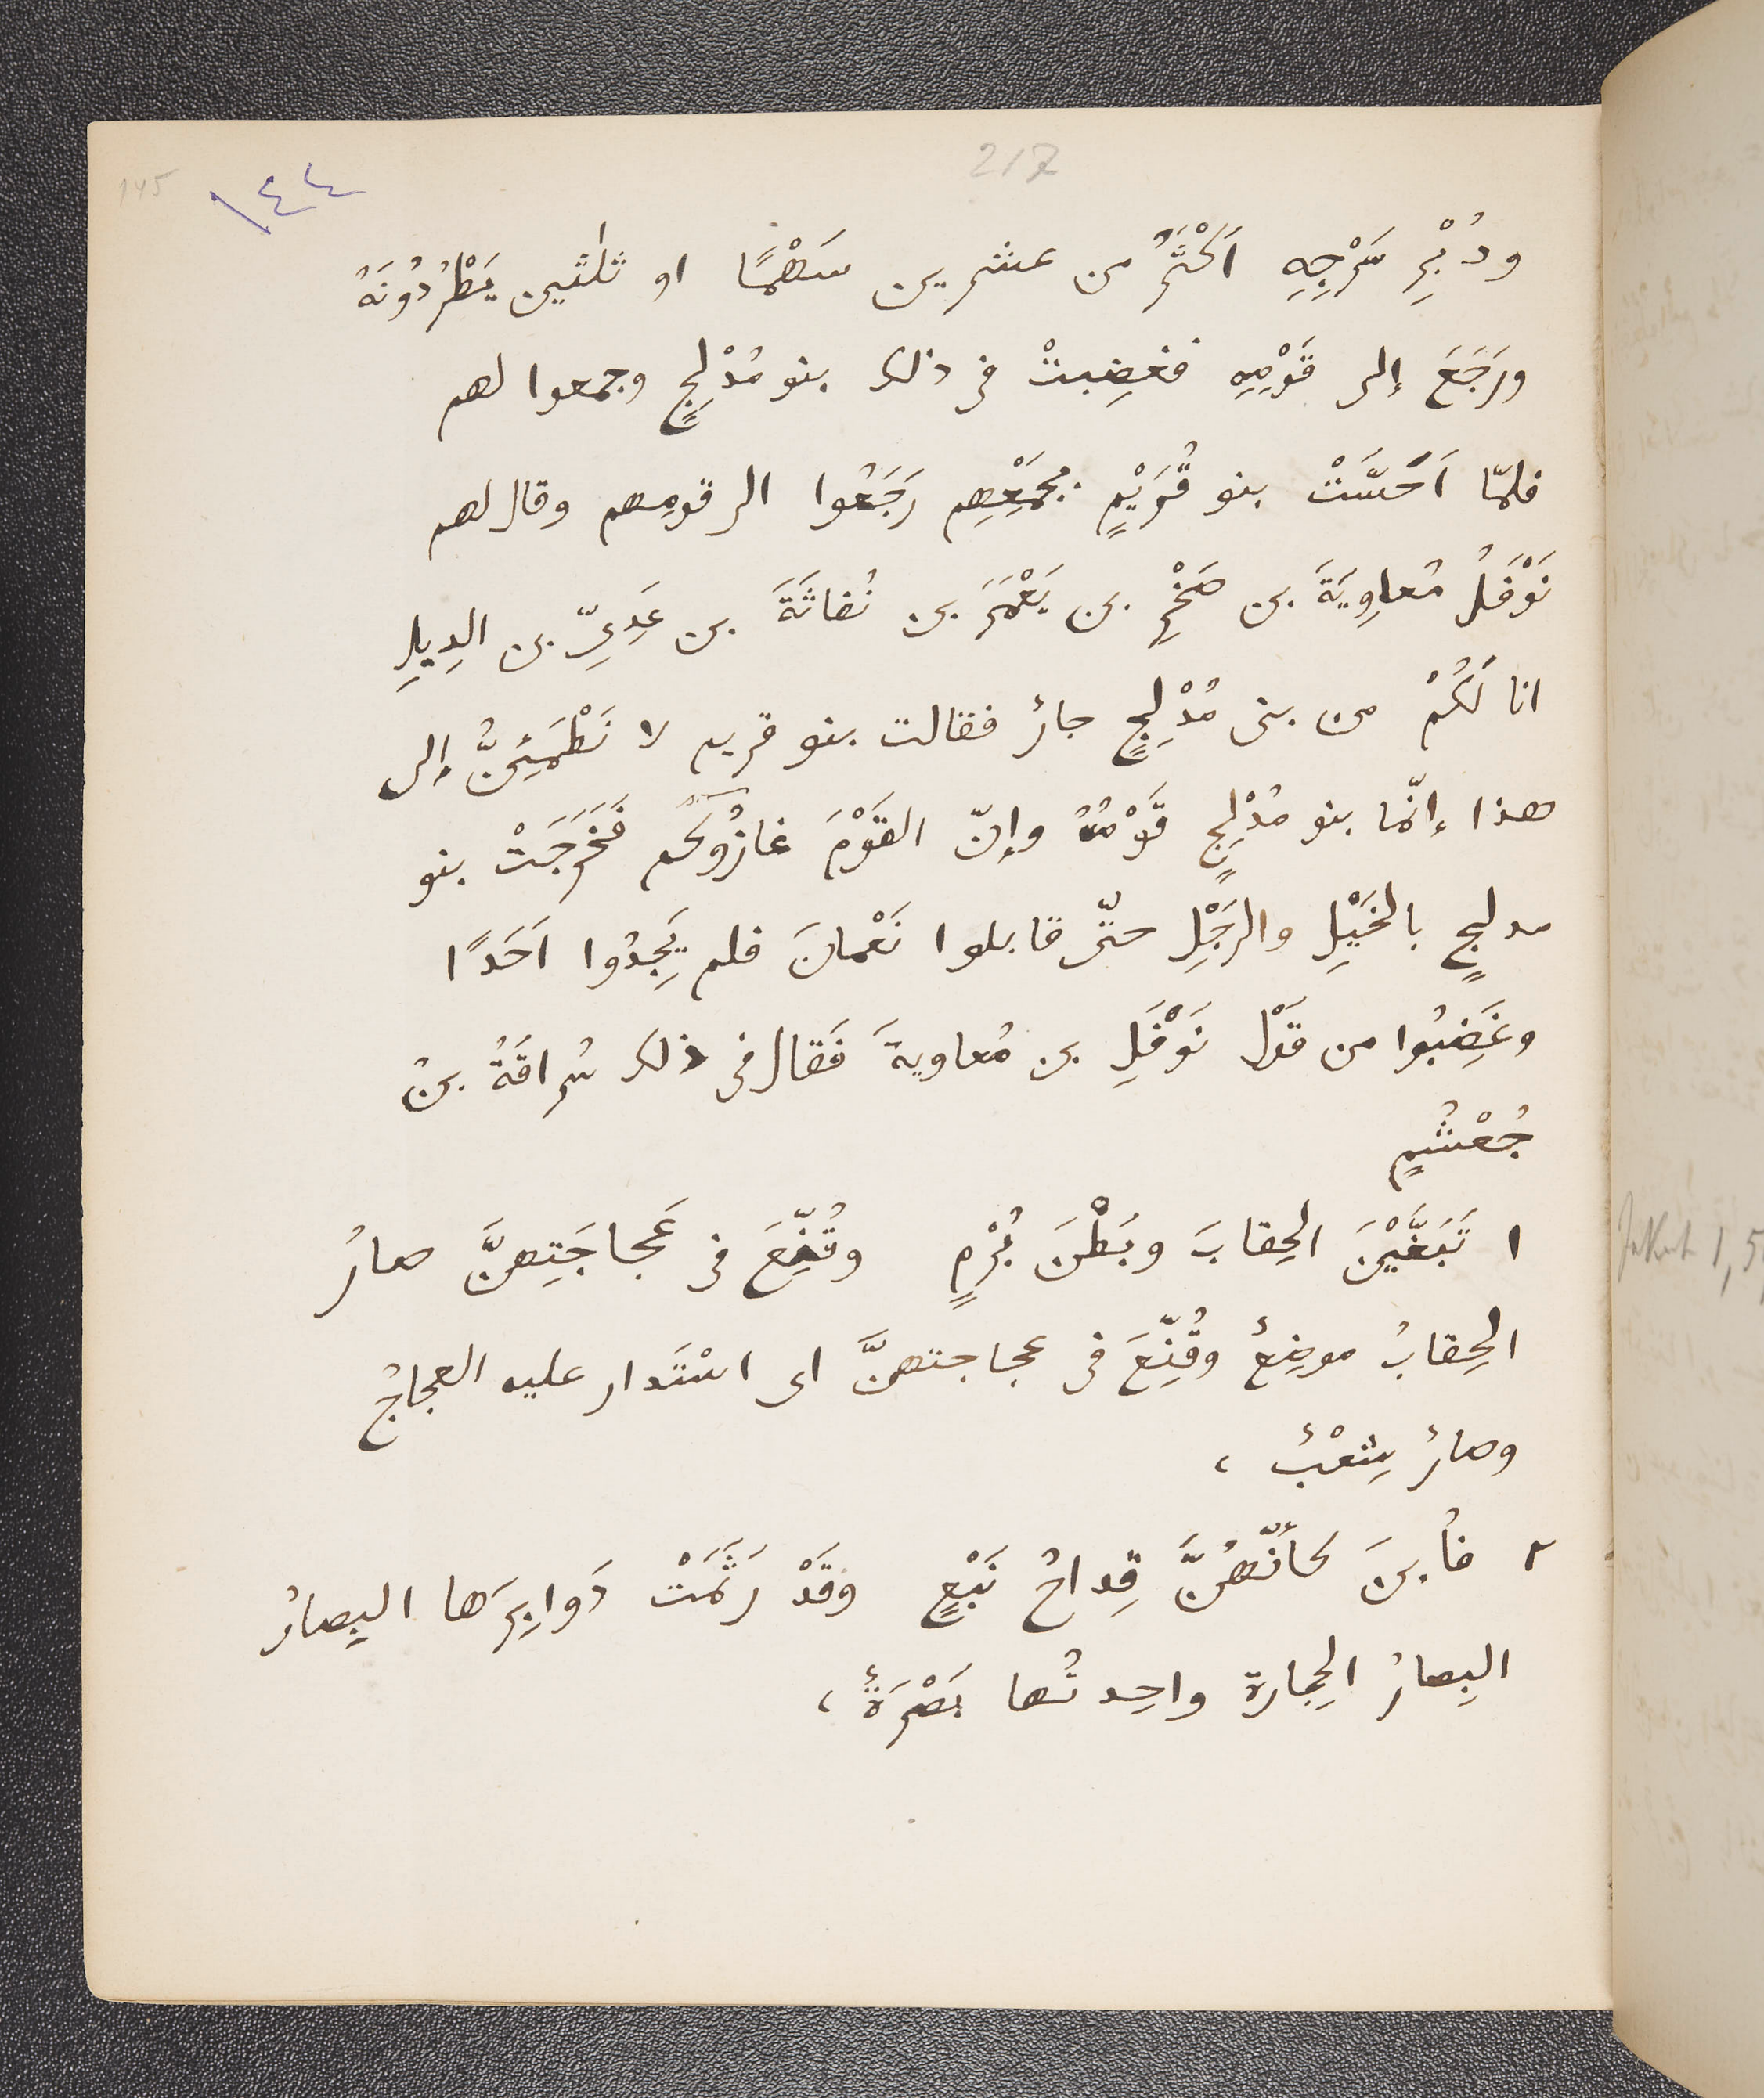 217
١٤٤
145
ودُبْرِ سَرْجِهِ اَكْثَرُ من عشرين سَهْمًا او ثلٰثين يَطْرُدُونَهُ
ورَجَعَ إلى قَوْمِهِ فغضِبتْ فى ذلك بنو مُدْلِجٍ وجمعوا لهم
فلمّا اَحَسَّتْ بنو قُرَيْمٍ بجَمْعِهِم رَجَعُوا الى قومِهم وقال لهم
نَوْفَلُ مُعاوِيَةَ بن صَخْرِ بن يَعْمَرَ بن نُفاثَةَ بن عَدِىِّ بن الدِيلِ
انا لَكُمْ من بنى مُدْلِجٍ جارٌ فقالت بنو قريم لا نَطْمَئِنُّ إلى
هذا إنّما بنو مُدْلِجٍ قَوْمُهُ وإنّ القَوْمَ غازُوكم فَخَرَجَتْ بنو
مدلجٍ بالخَيْلِ والرَجْلِ حتّى قابلوا نَعْمانَ فلم يَجِدُوا اَحَدًا
وغَضِبُوا من قَوْل نَوْفَلِ بن مُعاويةَ فَقال فى ذلك سُراقَةُ بنُ
جُعْشُمٍ
١ تَبَغَّيْنَ الحِقابَ وبَطْنَ بُرْمٍ وقُنِّعَ فى عَجاجَتِهِنَّ صارُ
الحِقابُ موضِعٌ وقُنِّعَ فى عجاجتهنَّ اى اسْتَدار عليه العجاجُ
وصارٌ شِعْبٌ ،
٢ فأُبنَ كأنّهُنَّ قِداحُ نَبْعٍ وقَدْ رَثَمَتْ دَوابِرَها البِصارُ
البِصارُ الحِجارة واحِدتُها بَصْرَةٌ ،